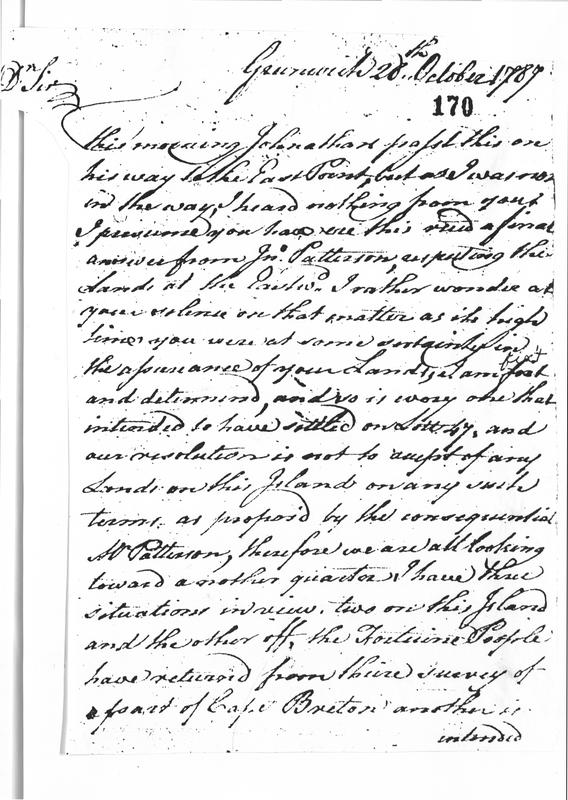 Greenwich 28th October 1787
Dr Sir
170
this morning Johnathan passt this on
his way to the East Point, but as I was not
in the way, I heard nothing from you;
I presume you have ere this recd a final
answer from Jno. Patterson, respecting the
Lands at the I rather wonder at
your silence on that matter as its high
time you were at some certainty in
the assurance of your Lands, I am fixt
and determind, and so is every one that
intended to have settled on Lott 47, and
our resolution is not to accept of any
Lands on this Island on any such
terms as propos'd by the consequential
Mr Patterson, therefore we are all looking
toward another quarter, I have three
situations in view, two on this Island
and the other off, the Fortune People
have returned from there survey of
a part of Cape Breton another is
intended